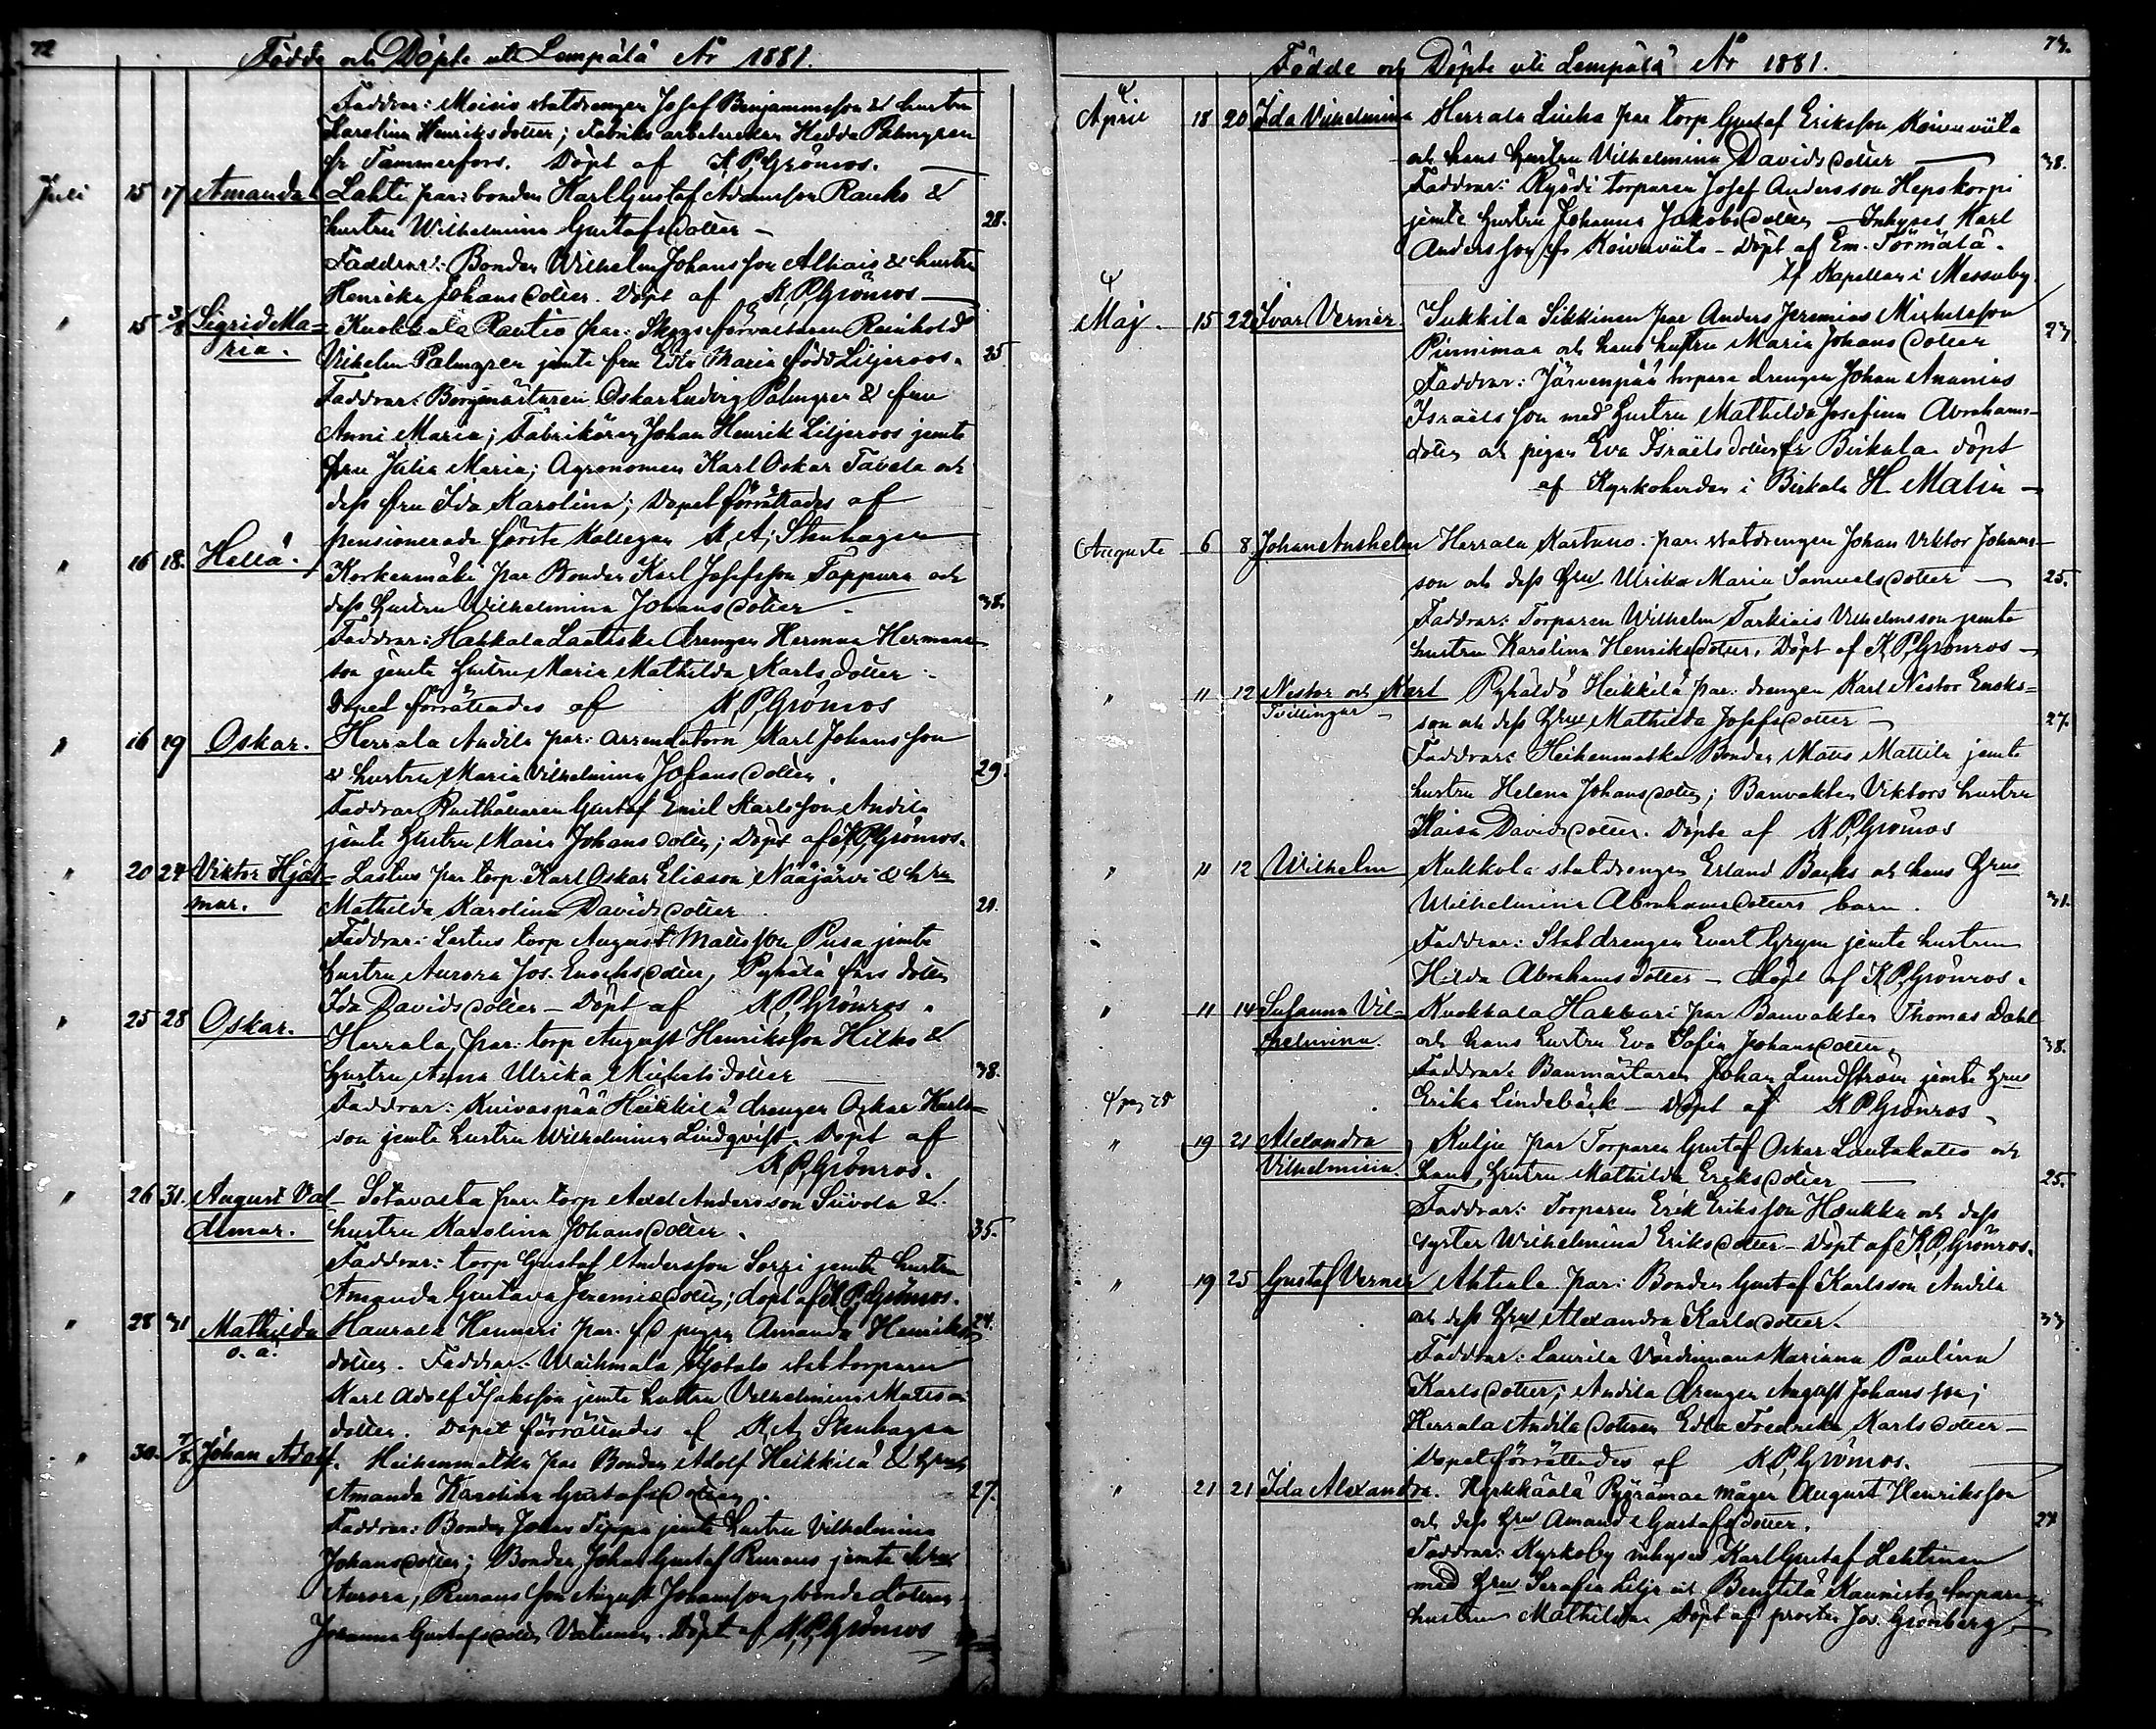 72
Födde och Döpte uti Lempälä År 1881.
Faddrar: Moisio statdrengen Josef Benjaminsson & hustru
Karolina Henriksdotter; Fabriks arbeterskan Hedda Palmgren
fr Tammerfors. Döpt af K. P. Grönroos.
Juli 15 17 Amanda Lahti par: bonden Karl Gustaf Adamsson Rauko &
hustru Wilhelmina Gustafsdotter - 28.
Faddrar: Bonden Wilhelm Johansson Alhais & hustru
Henrika Johansdotter. Döpt af K. P. Grönroos
" 15 3/8 Sigrid Ma- Kuokkala Rautio par: Skogsförvaltaren Reinhold
ria. Vilhelm Palmgren jemte fru Edla Maria född Liljeroos. 25
Faddrar: Borgmästaren Oskar Ludvig Palmgren & fru
Anni Maria; Fabrikören Johan Henrik Liljeroos jemte
fru Julia Maria; Agronomen Karl Oskar Tavela och
dess fru Ida Karolina; Dopet förrättades af
pensionerade förste Kollegan K. A. Stenhagen
" 16 18. Hellä. Korkenmäki par Bonden Karl Josefsson Tappura och
dess hustru Wilhelmina Johansdotter. 38.
Faddrar: Hakkala Laatiska drengen Herman Hermans-
son jemte hustru Maria Mathilda Karlsdotter.
Dopet förrättades af K. P. Grönroos
" 16 19 Oskar. Herrala Andila par: arrendatorn Karl Johansson
& hustru Maria Vilhelmina Johansdotter. 29.
Faddrar Rusthållaren Gustaf Emil Karlsson Andila
jemte hustru Maria Johansdotter; Döpt af K. P. Grönroos.
" 20 24 Viktor Hjal- Lastus par torp Karl Oskar Eliasson Nääjärvi & hru
mar. Mathilda Karolina Davidsdotter 21.
Faddrar: Lastus torp August Matsson Pusa jemte
hustru Aurora Jos. Enochsdotter, Pyhälä dotter
Ida Davidsdotter - Döpt af K. P. Grönroos.
" 25 28 Oskar. Herrala, par: torp August Henriksson Hilko &
hustru Anna Ulrika Michelsdotter 38.
Faddrar: Kuivaspää Heikkilä drengen Oskar Karls-
son jemte hustru Wilhelmina Lindqvist. Döpt af
K. P. Grönroos.
" 26 31. August Val- Sotavalta par torp Axel Andersson Siivola &
demar. hustru Karolina Johansdotter. 35.
Faddrar: torp Gustaf Andersson Sorri jemte hustru
Amanda Gustava Jeremiedotter; döpt af K. P. Grönroos.
" 28 31 Mathilda Haurala Henneri par. pigan Amanda Henriks 24.
o. ä. dotter. Faddrar: Waihmala statorparen
Karl Adolf Isaksson jemte hustru Vilhelmina Mats-
dotter. Dopet förrättades af K. A. Stenhagen
" 30. 7/8. Johan Adolf. Heikenmatka par Bonden Adolf Heikkilä & hru
Amanda Karolina Gustafsdotter. 27.
Faddrar: Bonden Johan Seppä jemte hustru Vilhelmina
Johansdotter; Bonden Johan Gustaf Ruraus jemte hru
Aurora; Ruraus son August Johansson, bonde dottren
Johanna Gustafsdotter. Döpt af K. P. Grönroos
73.
Födde och Döpte uti Lempälä År 1881.
April 18 20 Ida Vilhelmina Herrala par torp Gustaf Eriksson Koivuviita
och hans hustru Vilhelmina Davidsdotter 38.
Faddrar: Ryödi torparen Josef Andersson Hepokorpi
jemte hustru Johanna Jakobsdotter - Inhyses Karl
Andersson fr Koivuviita - Döpt af Em. Törmälä.
Kapellan i Messuby
Maj 15 22 Ivar Verner. Sukkila Sikkinen par Anders Jeremias Michelsson
Pinnimaa och hans hustru Maria Johansdotter 27
Faddrar: Järvenpää torpare drengen Johan Ananias
Israelsson med hustru Mathilda Josefina Abrahams-
dotter och pigan Eva Israelsdotter fr Birkala döpt
af Kyrkoherden i Birkala H. Malin
Augusti 6 8 Johan Anshelm Herrala Kartano. par statdrengen Johan Viktor Johans-
son och dess hru Ulrika Maria Samuelsdotter 25.
Faddrar: Torparen Wilhelm Tarkiais Vilhelmsson jemte
hustru Karolina Henriksdotter. Döpt af K. P. Grönroos
" 11 12 Nestor och Karl Pyhäldö Heikkilä par: drengen Karl Nestor Enoks-
Tvillingar son och dess hru Mathilda Josefsdotter 27.
Faddrar: Heikenmatka Bonden Mats Mattila jemte
hustru Helena Johansdotter; Banvakten Viktors hustru
Kaisa Davidsdotter. Döpte af K. P. Grönroos
" 11 12 Wilhelm Kukkola statdrengen Erland Backs och hans hru
Wilhelmina Abrahamsdotters barn. 31.
Faddrar: Statdrengen Evert Grym jemte hustrun
Hilda Abrahamsdotter - döpt af K. P. Grönroos.
" 11 14 Susanna Vil- Kuokkala Hakkari par Banvakten Thomas Dahl
helmina. och hans hustru Eva Sofia Johansdotter. 38.
Faddrar: Banmästaren Johan Lundström jemte hru
Erika Lindebäck - Döpt af K. P. Grönroos.
" 19 21 Alexandra Kulju par Torparen Gustaf Oskar Lautakatto och
Vilhelmina. hans hustru Mathilda Eriksdotter 25.
Faddrar: Torparen Erik Eriksson Haukka och dess
syster Wilhelmina Eriksdotter - Döpt af K. P. Grönroos.
" 19 25 Gustaf Verner Ahtiala par: Bonden Gustaf Karlsson Andila
och dess hru Alexandra Karlsdotter. 33
Faddrar: Laurila Mariana Paulina
Karlsdotter; Andila drengen August Johansson;
Herrala Andila dottren Edla Fredrika Karlsdotter -
Dopet förrättades af K. P. Grönroos.
" 21 21 Ida Alexandra. Hyrkkäälä mågen August Henriksson
och dess hru Amanda Gustafsdotter. 24
Faddrar: Kyrkoby inhyses Karl Gustaf Lehtinen
med hru Serafia Lilja och Bengtilä Kaunisto torpare-
hustrun Mathilda. Döpt af prosten Jos. Grönberg